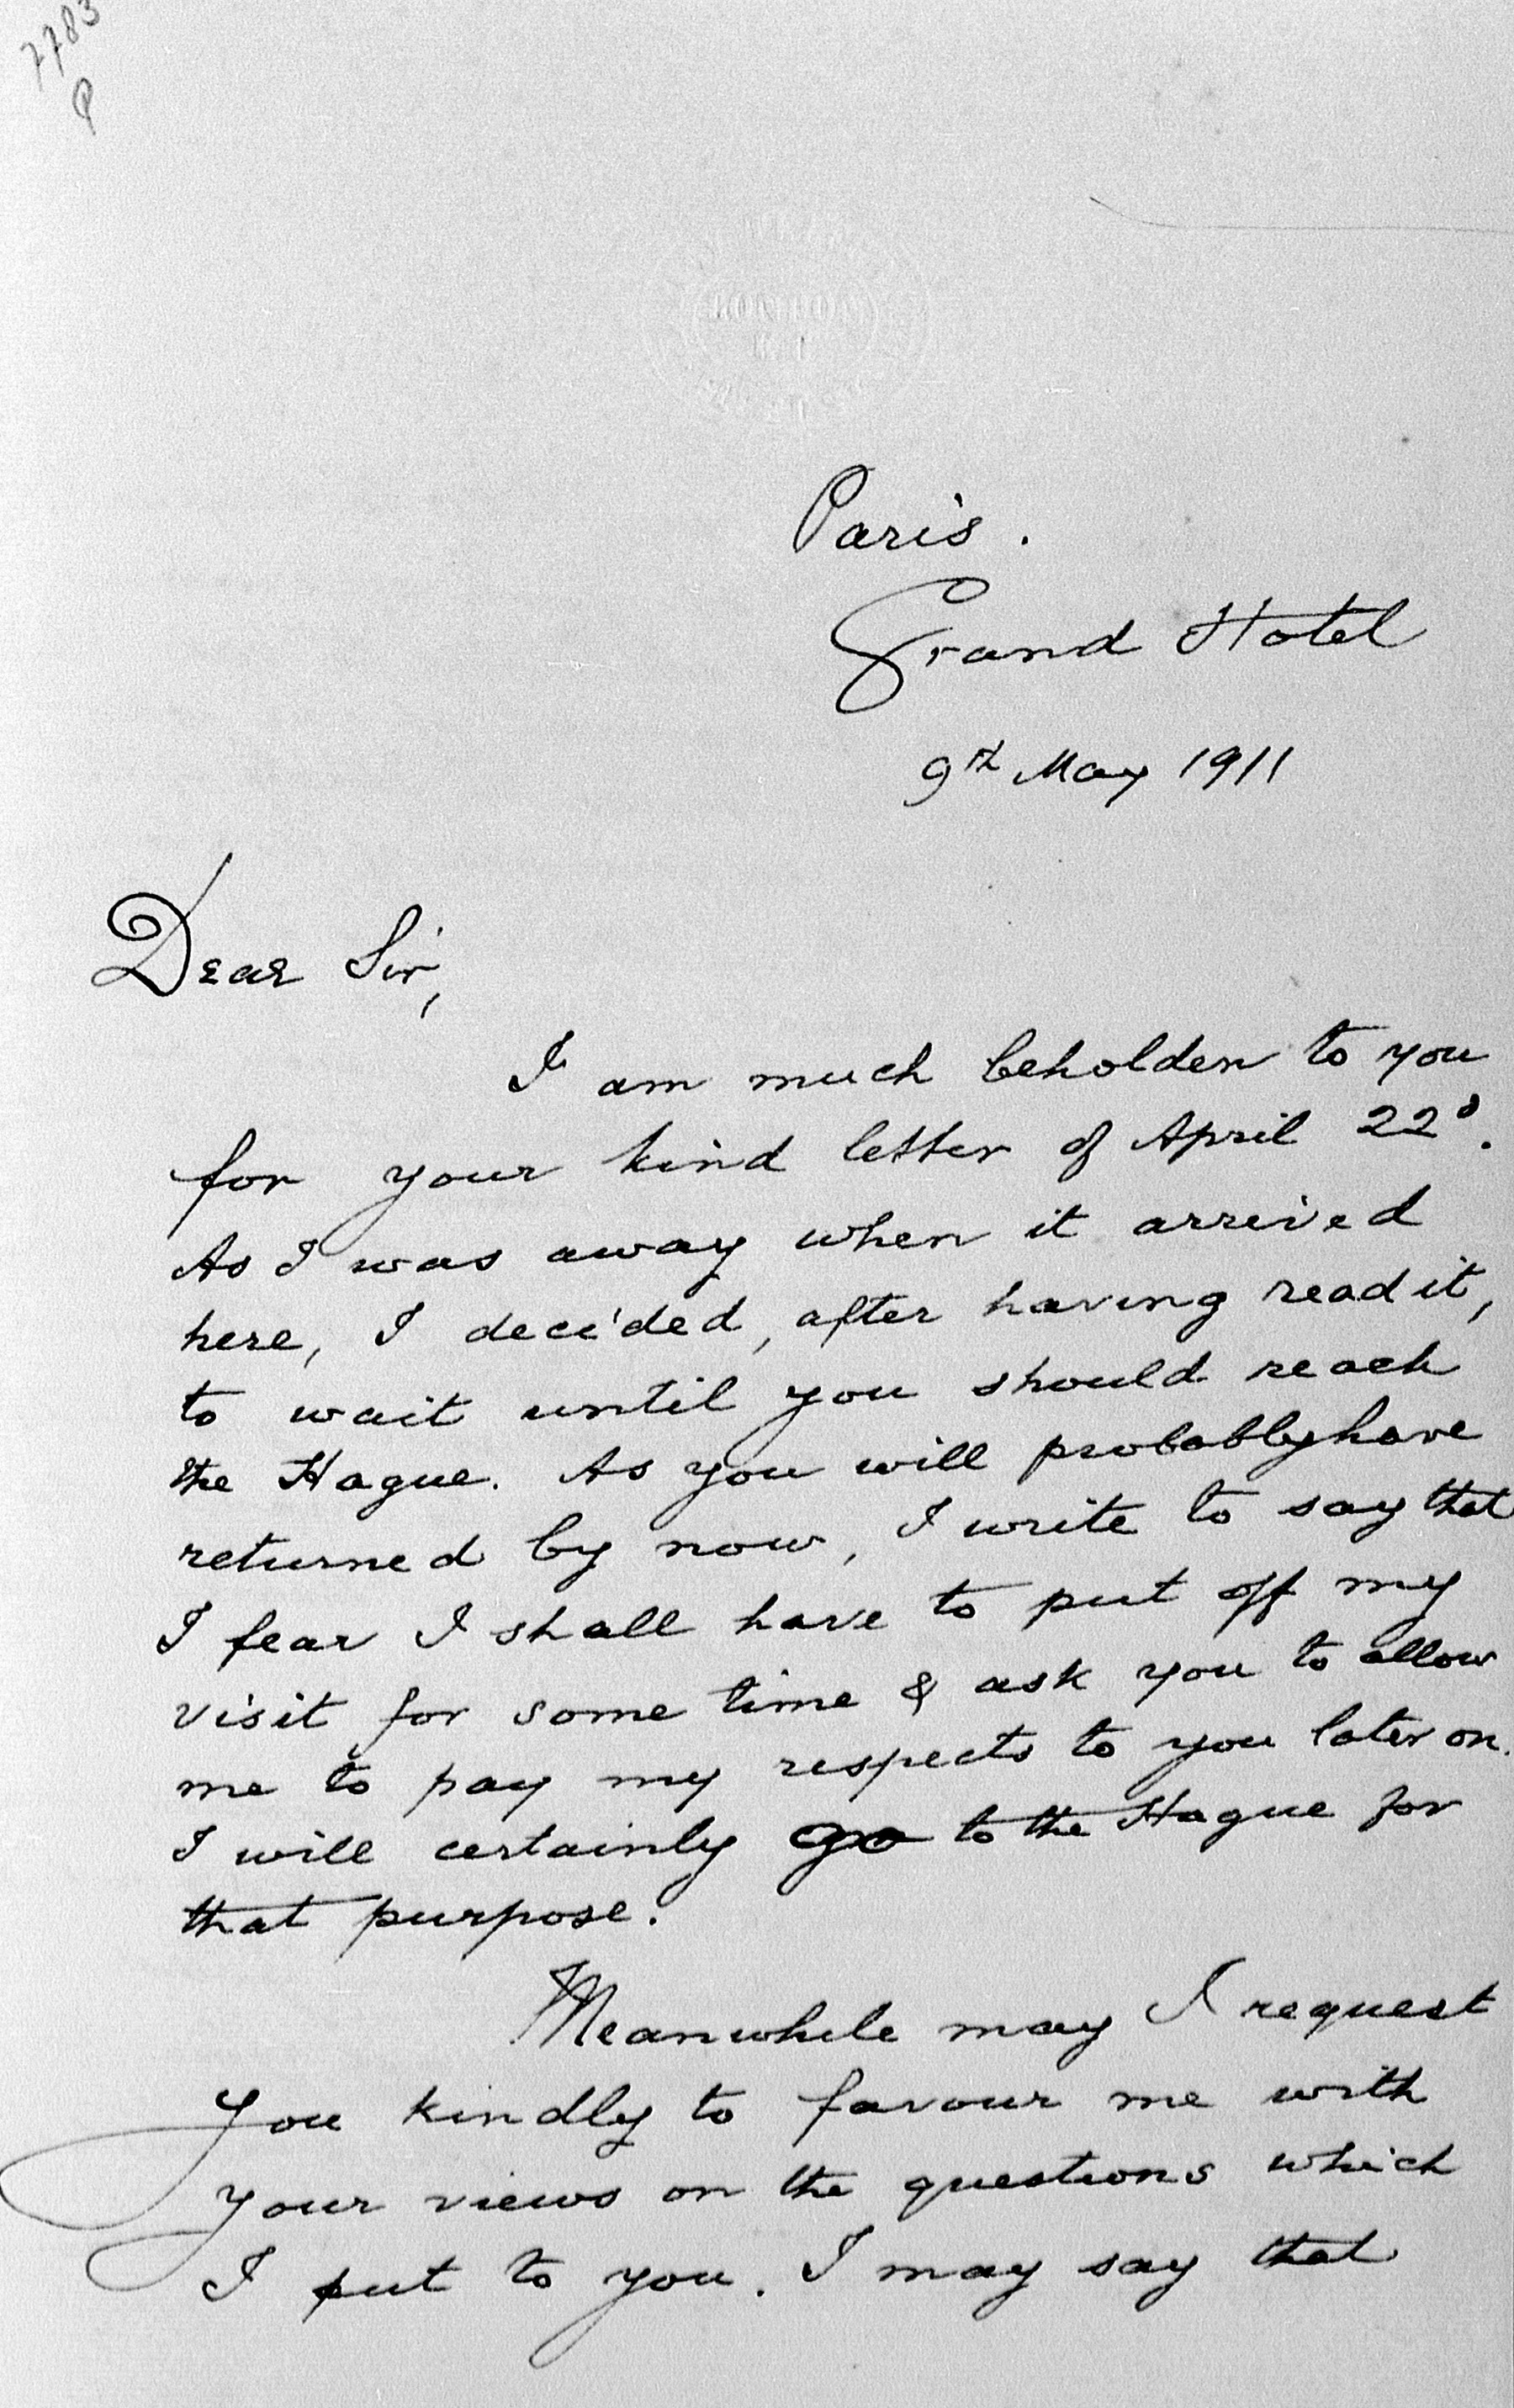 7783
P
LONDON
Paris.
Grand Hotel
9th May 1911
Dear Sir,
I am much beholden to you
for your kind letter of April 22d.
As I was away when it arrived
here, I decided, after having read it,
to wait until you should reach
the Hague. As you will probably have
returned by now, I write to say that
I fear I shall have to put off my
visit for some time & ask you to allow
me to pay my respects to you later on.
I will certainly go to the Hague for
that purpose.
Meanwhile may I request
you kindly to favour me with
your views on the questions which
I put to you. I may say that